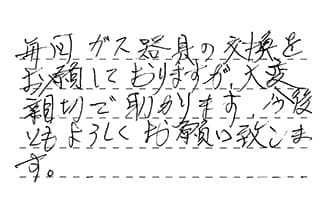 毎回ガス器具の交換を
お願しておりますが、大変
親切で助かります、今後
ともよろしくお願い致しま
す。